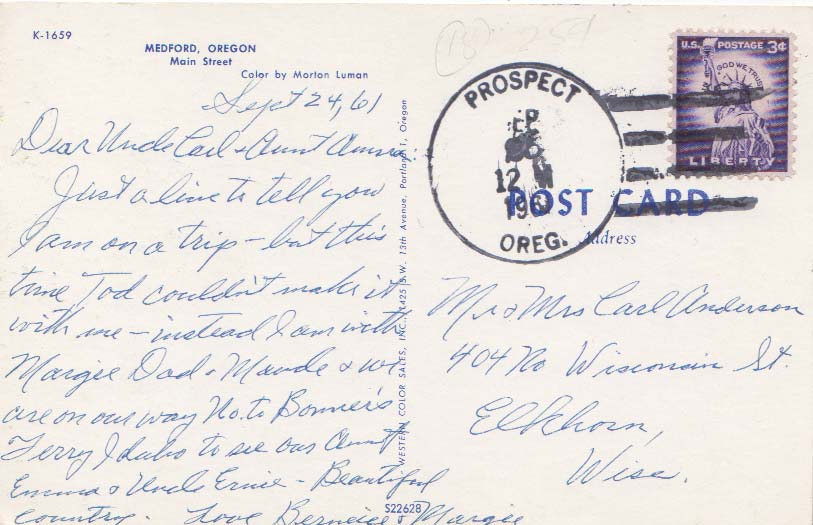 K-1659
MEDFORD, OREGON
Main Street
Color by Morton Luman
Sept 24, 61
Dear Uncle Carl & Aunt Anna
Just a line to tell you
I am on a trip - but this
time Tod couldn't make it
with me - instead I am with
Margie Dad & Maude & we
are on our way No. to Bonner's
Ferry Idaho to see our Aunt
Emma & Uncle Ernie - Beautiful
country. Love Berneice & Margie
WESTERN COLOR SALES, INC., 1425 S.W. 13th Avenue, Portland 1, Oregon
S22628
PROSPECT
12 M
196
OREG.
U.S. POSTAGE 3¢
IN GOD WE TRUST
LIBERTY
POST CARD
Address
Mr & Mrs Carl Anderson
404 No Wisconsin St.
Elkhorn,
Wisc.